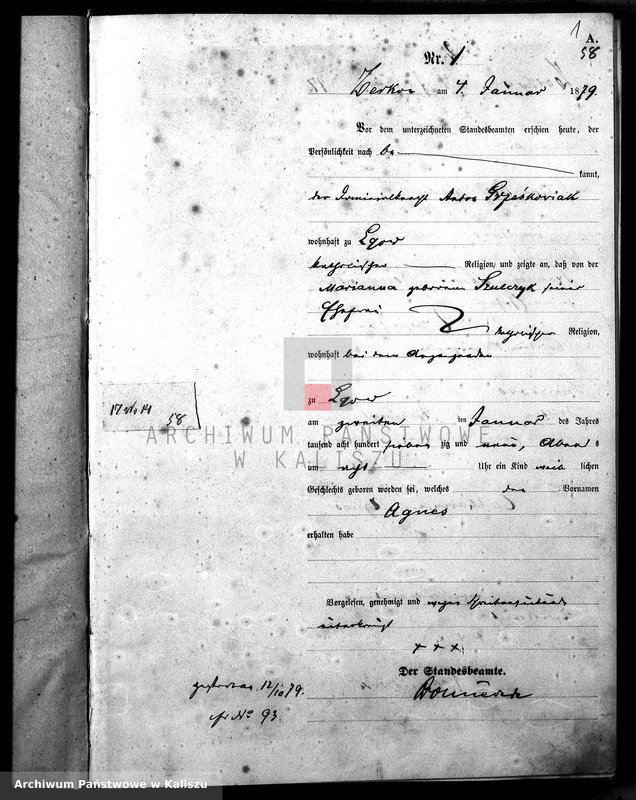 1
A.
58
Nr. 1
Zerkow am 4. Januar 1879.
Vor dem unterzeichneten Standesbeamten erschien heute, der
Persönlichkeit nach be
kannt,
der Dominialknecht Anton Grześkowiak
wohnhaft zu Lgow
katholischer Religion, und zeigte an, daß von der
Marianna geborenen Szulczyk seiner
Ehefrau
katholischer Religion,
wohnhaft bei dem Anzeigenden
zu Lgow
am zweiten ten Januar des Jahres
tausend acht hundert sieben zig und neun, Abend s
um acht Uhr ein Kind weib lichen
Geschlechts geboren worden sei, welches den Vornamen
Agnes
erhalten habe
17 No 14
58
Vorgelesen, genehmigt und wegen Schreibensunkunde
unterkreuzt
+ + +
Der Standesbeamte.
gestorben 12/10 79.
cfr No 93.
ARCHIWUM PAŃSTWOWE
W KALISZU
Archiwum Państwowe w Kaliszu